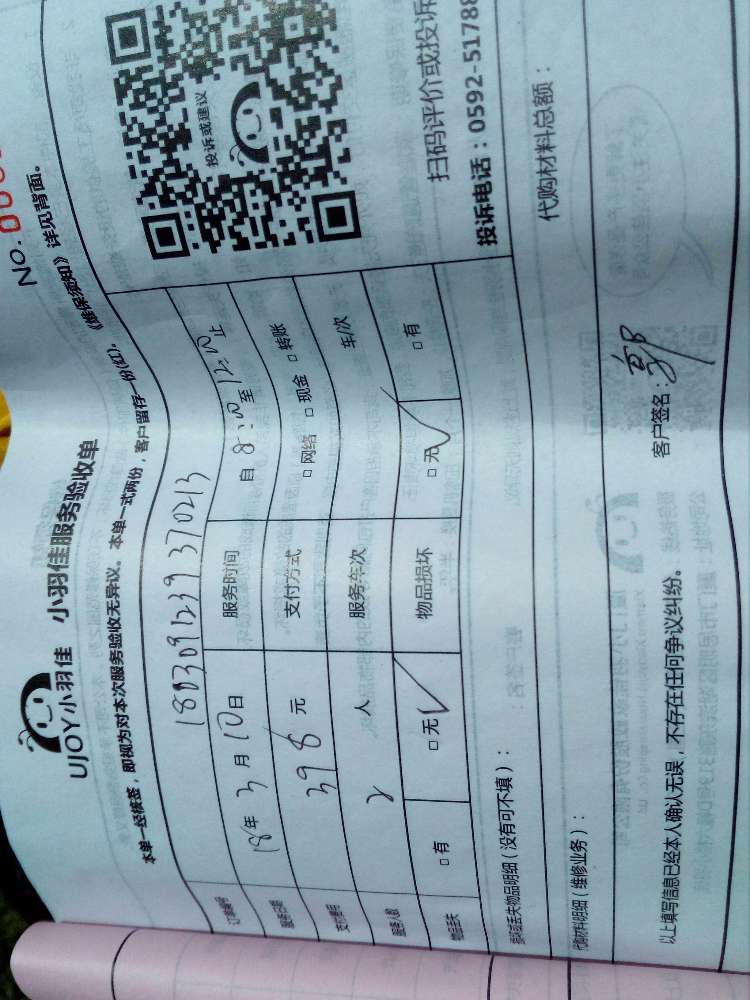 No.
UJOY小羽佳 小羽佳服务验收单
本单一经接签，即视为对本次服务验收无异议。本单一式两份，客户留存一份(红)，《维保须知》详见背面。
订单编号 1803091239370213
服务日期 18年3月10日 服务时间 自8:00至12:00止
支付费用 398元 支付方式 □网络 □现金 □转账
服务人数 2人 服务车次 车/次
物品丢失 □有 □无✓ 物品损坏 □无✓ □有
投诉或建议
扫码评价或投诉
投诉电话：0592-51788
损坏或丢失物品明细（没有可不填）：
代购材料明细（维修业务）： 代购材料总额：
以上填写信息已经本人确认无误，不存在任何争议纠纷。 客户签名：郭